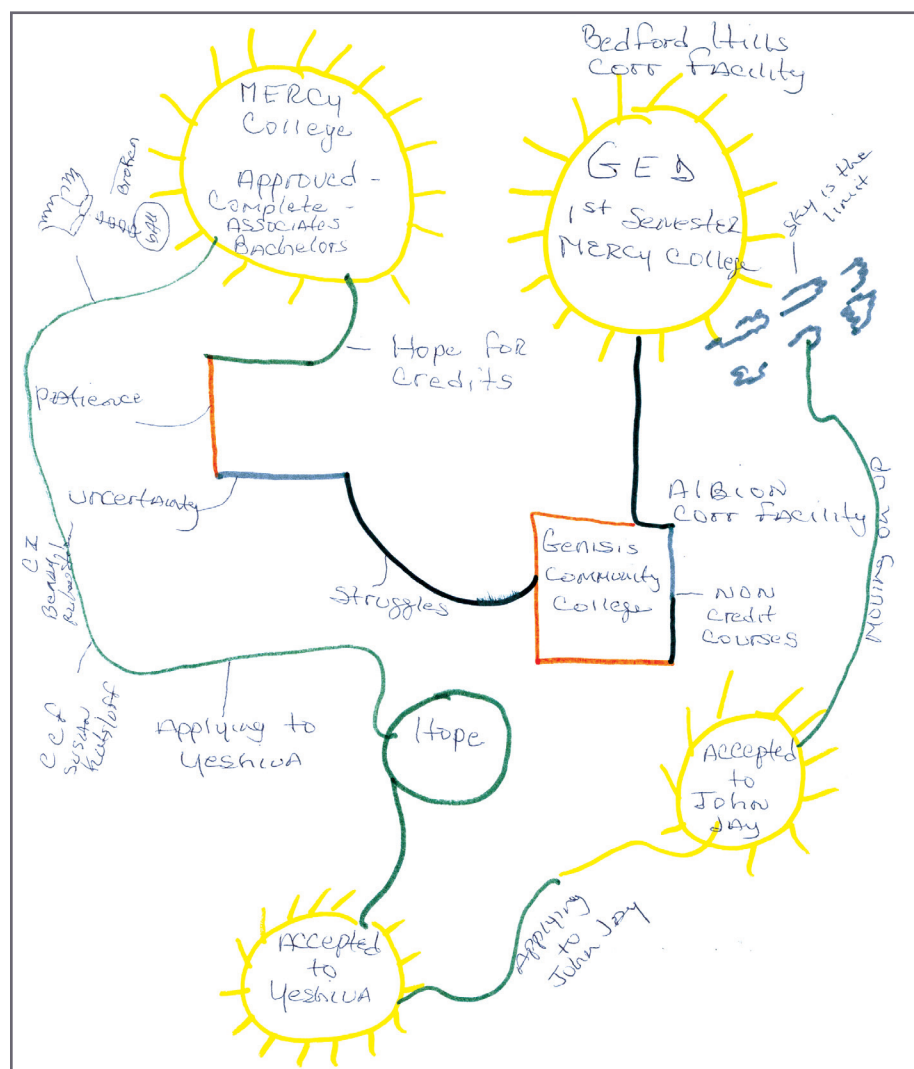 Bedford Hills
Corr Facility
MERCy
College
Approved -
Complete -
Associates
Bachelors
GED
1st Semester
MERCy College
sky is the
limit
Broken
Ball
Hope for
Credits
Patience
Uncertainty
Struggles
ALBION
Corr Facility
Genisis
Community
College
NON
Credit
Courses
Moving on up
CCF
Susan
Applying to
Yeshiva
Hope
Accepted
to
John
Jay
Applying
to
John Jay
Accepted
to
Yeshiva